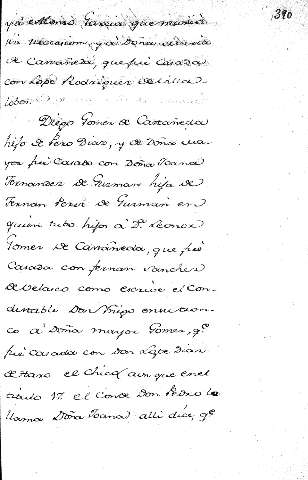 390
y a Alonso Garcia que murió
sin subcesion, y a Doña Maria
de Castañeda, que fué Casada
con Lope Rodriguez de Villa-
lobos.
Diego Gomez de Castañeda
hijo de Pero Diaz, y de Doña Ma-
yor fué Casado con Doña Juana
Fernandez de Guzman hija de
Fernan Perez de Guzman en
quien tubo hijos a D.ª Leonor
Gomez de Castañeda, que fué
Casada con fernan Sanchez
de Velasco como escribe el Con-
destable Don Yñigo en su
a Doña mayor Gomez, q.e
fué Casada con Don Lope Diaz
de Haro el Chico, aunque en el
titulo 17. el Conde Don Pedro la
llama Doña Juana alli dice, q.e